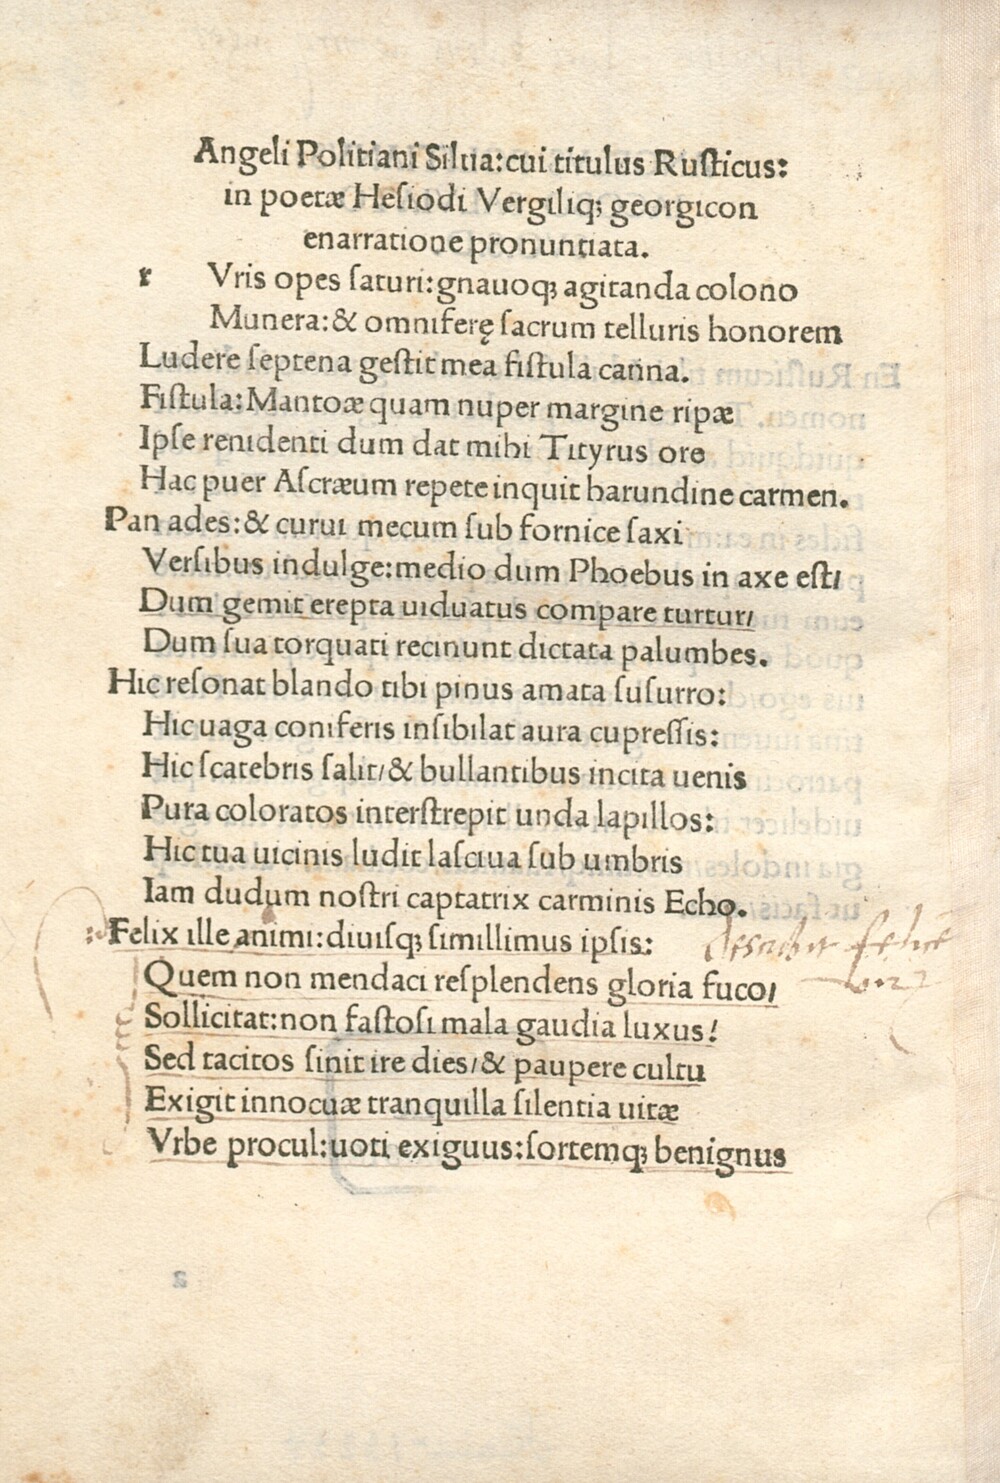 Angeli Politiani Silua: cui titulus Rusticus:
in poetæ Hesiodi Vergiliq; georgicon
enarratione pronuntiata.
r Vris opes saturi: gnauoq; agitanda colono
Munera: & omniferę sacrum telluris honorem
Ludere septena gestit mea fistula canna.
Fistula: Mantoæ quam nuper margine ripæ
Ipse renidenti dum dat mihi Tityrus ore
Hac puer Ascræum repete inquit harundine carmen.
Pan ades: & curui mecum sub fornice saxi
Versibus indulge: medio dum Phoebus in axe est/
Dum gemit erepta uiduatus compare turtur/
Dum sua torquati recinunt dictata palumbes.
Hic resonat blando tibi pinus amata susurro:
Hic uaga coniferis insibilat aura cupressis:
Hic scatebris salit/ & bullantibus incita uenis
Pura coloratos interstrepit unda lapillos:
Hic tua uicinis ludit lasciua sub umbris
Iam dudum nostri captatrix carminis Echo.
Felix ille animi: diuisq; simillimus ipsis:
Quem non mendaci resplendens gloria fuco/
Sollicitat: non fastosi mala gaudia luxus!
Sed tacitos sinit ire dies/ & paupere cultu
Exigit innocuæ tranquilla silentia uitæ
Vrbe procul: uoti exiguus: sortemq; benignus